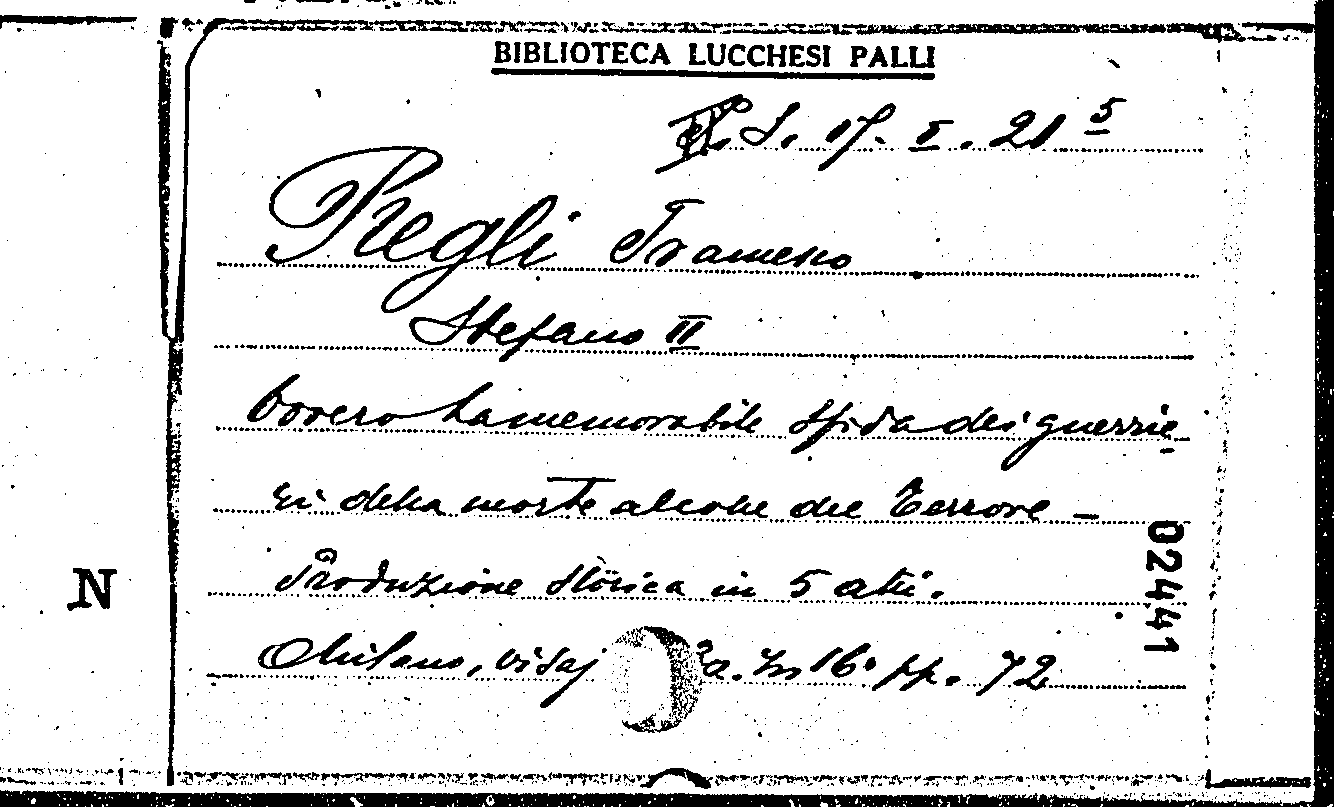 BIBLIOTECA LUCCHESI PALLI
S. 17. I. 21 5
Regli Francesco
Stefano II
ovvero La memorabile sfida dei guerrie-
ri della morte al colle del Terrore -
Produzione storica in 5 atti.
Milano, Visaj a. In 16° pp. 72
N
02441